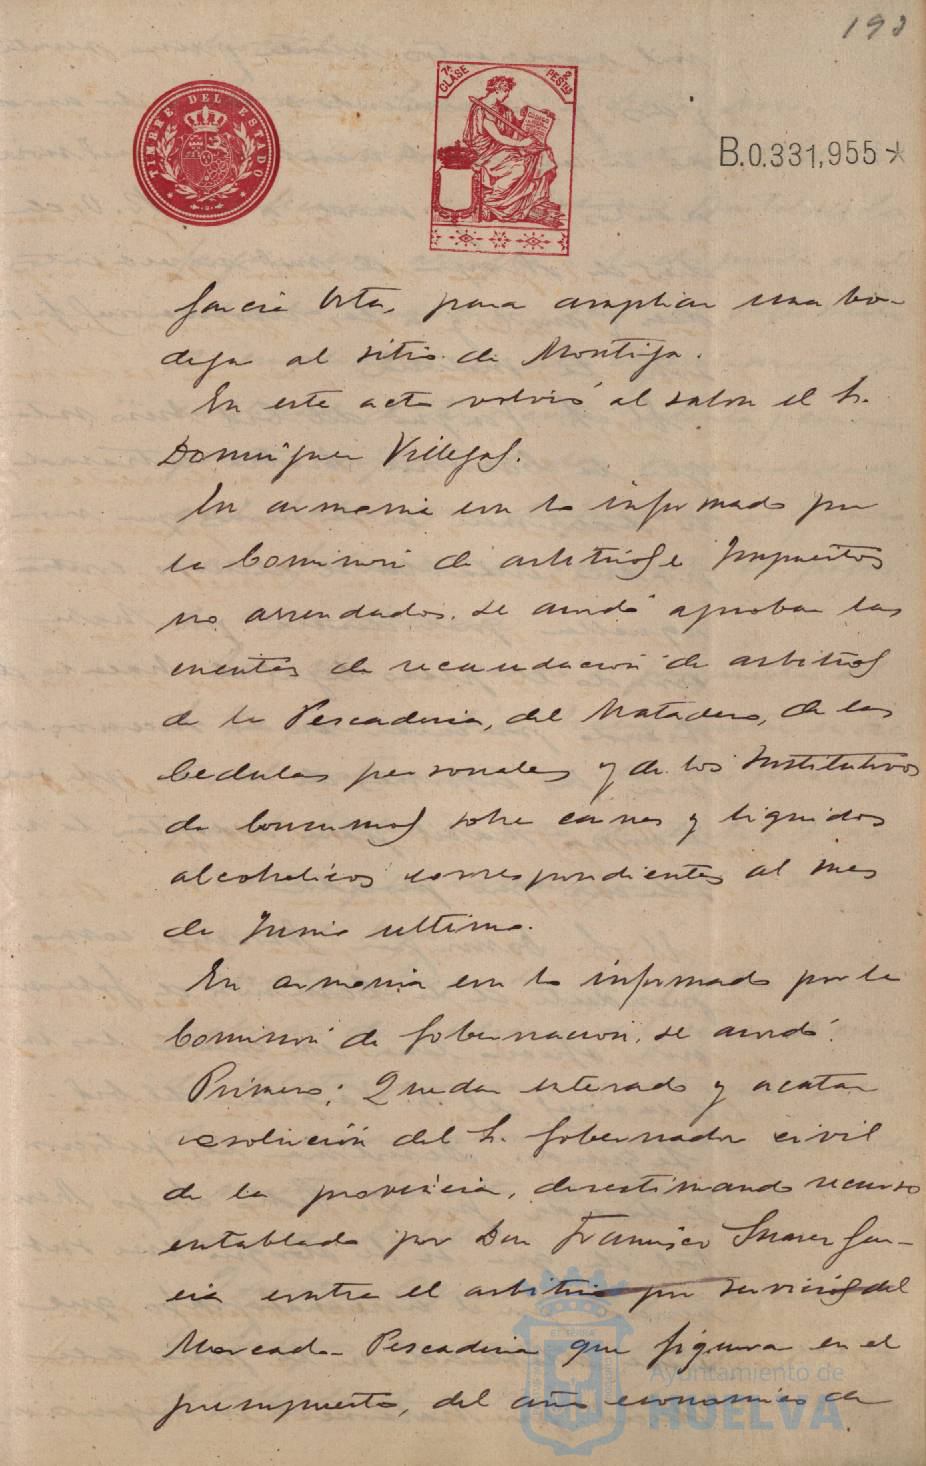 193
TIMBRE DEL ESTADO
7ª CLASE
2 PESTAS
B.0.331,955*
Garcia Orta, para ampliar una bo-
dega al sitio de Montija.
En este acto volvió al salon el Sr.
Dominguez Villegas.
En armonia con lo informado por
la Comision de arbitrios e Impuestos
no arrendados, se acordó aprobar las
cuentas de recaudación de arbitrios
de la Pescaderia, del Matadero, de las
Cedulas personales y de los sustitutivos
de Consumos sobre carnes y liquidos
alcoholicos correspondientes al mes
de Junio ultimo.
En armonia con lo informado por la
Comision de Gobernacion, se acordó:
Primero: Quedar enterado y acatar
resolución del Sr. Gobernador civil
de la provincia, desestimando recurso
entablado por Don Francisco Suarez Gar-
cia contra el arbitrio por servicios del
Mercado-Pescaderia que figura en el
presupuesto, del año economico de
Ayuntamiento de
HUELVA